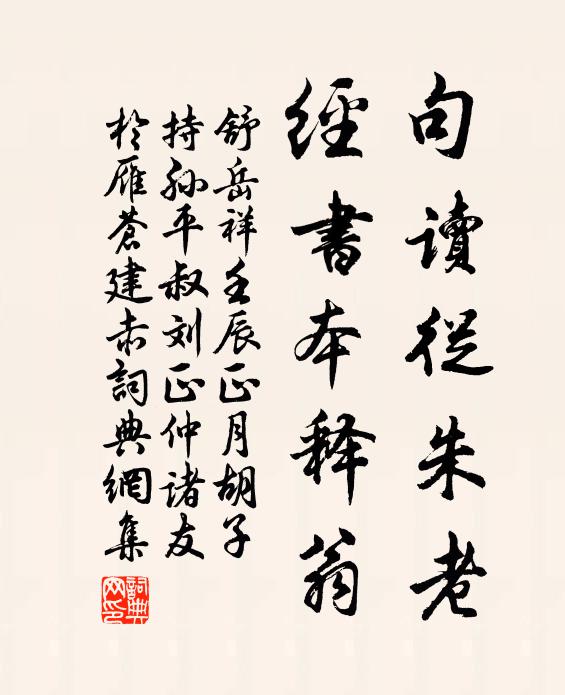 句讀從朱老
經書本释翁
舒岳祥壬辰正月胡子
持孙平叔刘正仲诸友
於雁蒼建赤詞典網集
詞典
网印